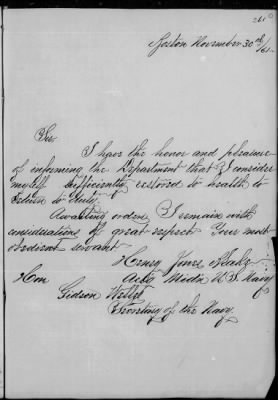 261
Boston November 30th/61.
Sir
I have the honor and pleasure
of informing the Department that I consider
myself sufficiently restored to health to
return to duty.
Awaiting orders, I remain with
considerations of great respect Your most
obedient servant
Henry Jones
Actg Midn U.S. Navy
Hon
Gideon Welles
Secretary of the Navy.